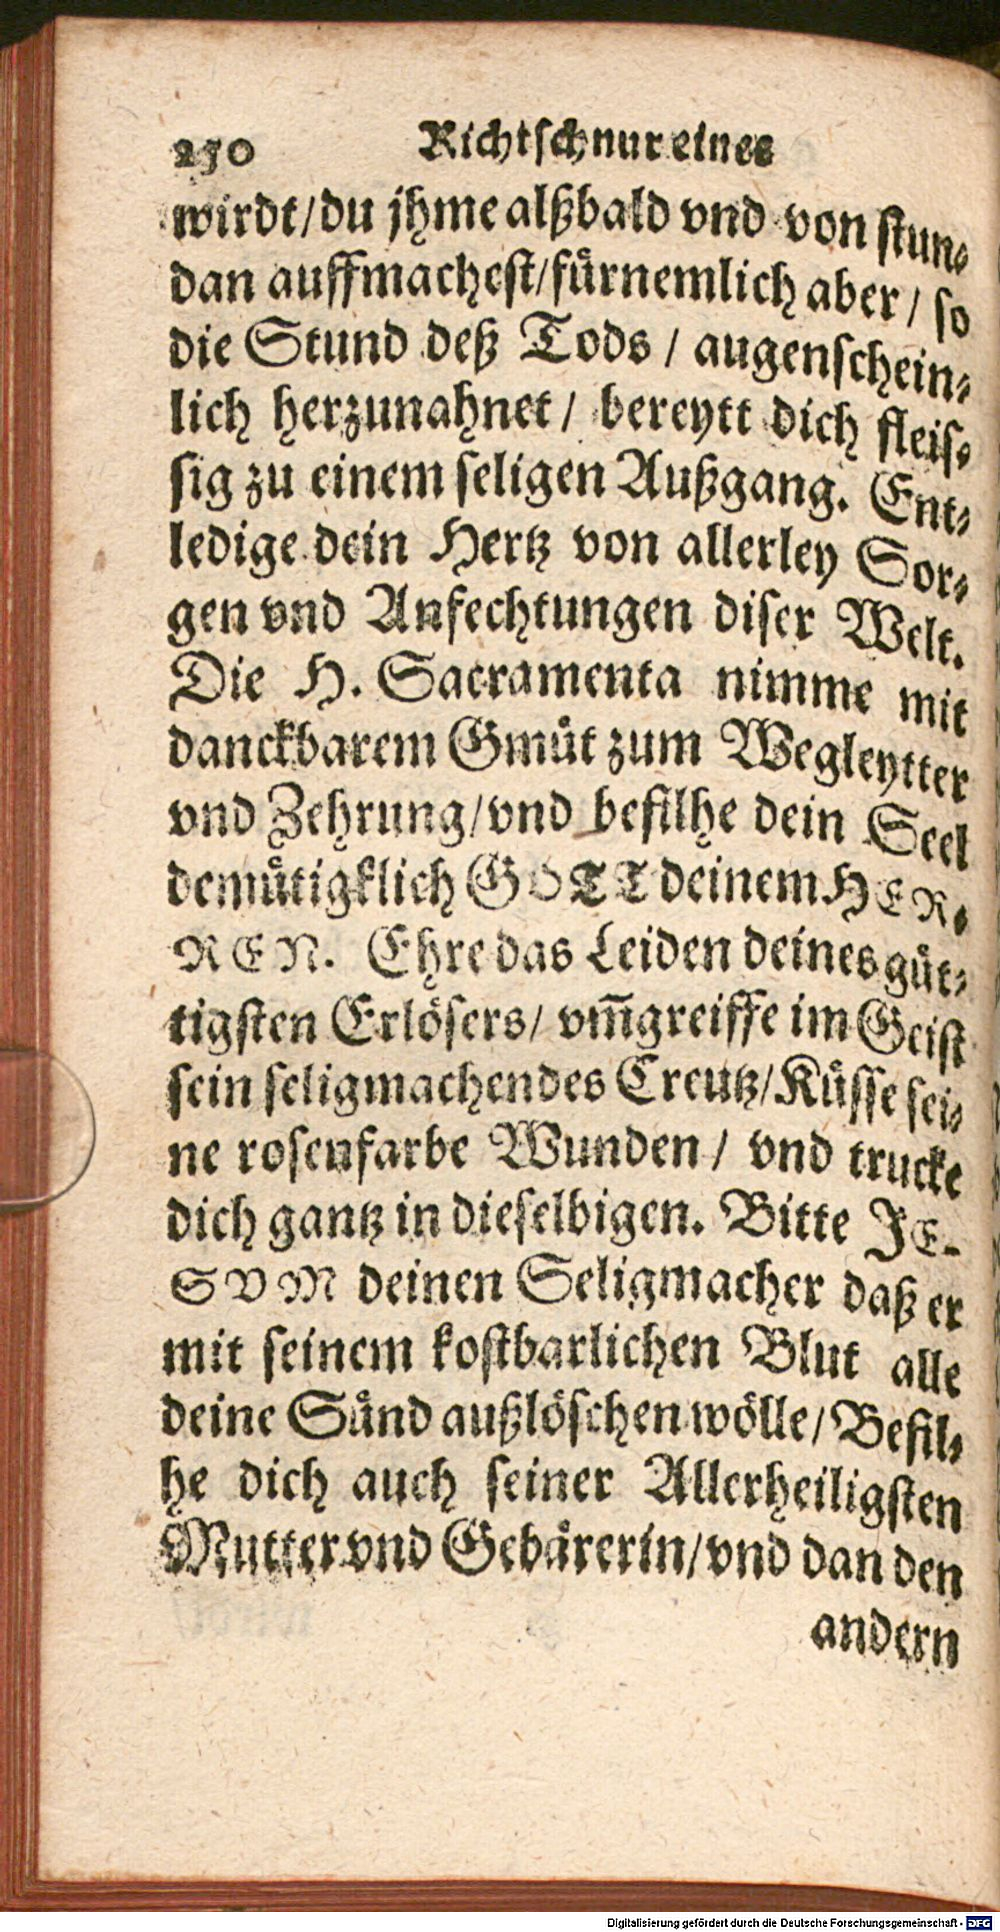 250 Richtschnur eines
wirdt/du jhme alßbald vnd von stun⸗
dan auffmachest/fürnemlich aber/ so
die Stund deß Tods / augenschein⸗
lich herzunahnet/ bereytt dich fleis⸗
sig zu einem seligen Außgang. Ent⸗
ledige dein Hertz von allerley Sor⸗
gen vnd Anfechtungen diser Welt.
Die H. Sacramenta nimme mit
danckbarem Gmüt zum Wegleytter
vnd Zehrung/vnd befilhe dein Seel
demütigklich GOTT deinem HER⸗
REN. Ehre das Leiden deines güt⸗
tigsten Erlösers/ vm̃greiffe im Geist
sein seligmachendes Creutz/Küsse sei⸗
ne rosenfarbe Wunden/ vnd trucke
dich gantz in dieselbigen. Bitte JE-
SVM deinen Seligmacher daß er
mit seinem kostbarlichen Blut alle
deine Sünd außlöschen wölle/Befil⸗
he dich auch seiner Allerheiligsten
Mutter vnd Gebärerin/vnd dan den
andern
Digitalisierung gefördert durch die Deutsche Forschungsgemeinschaft - DFG